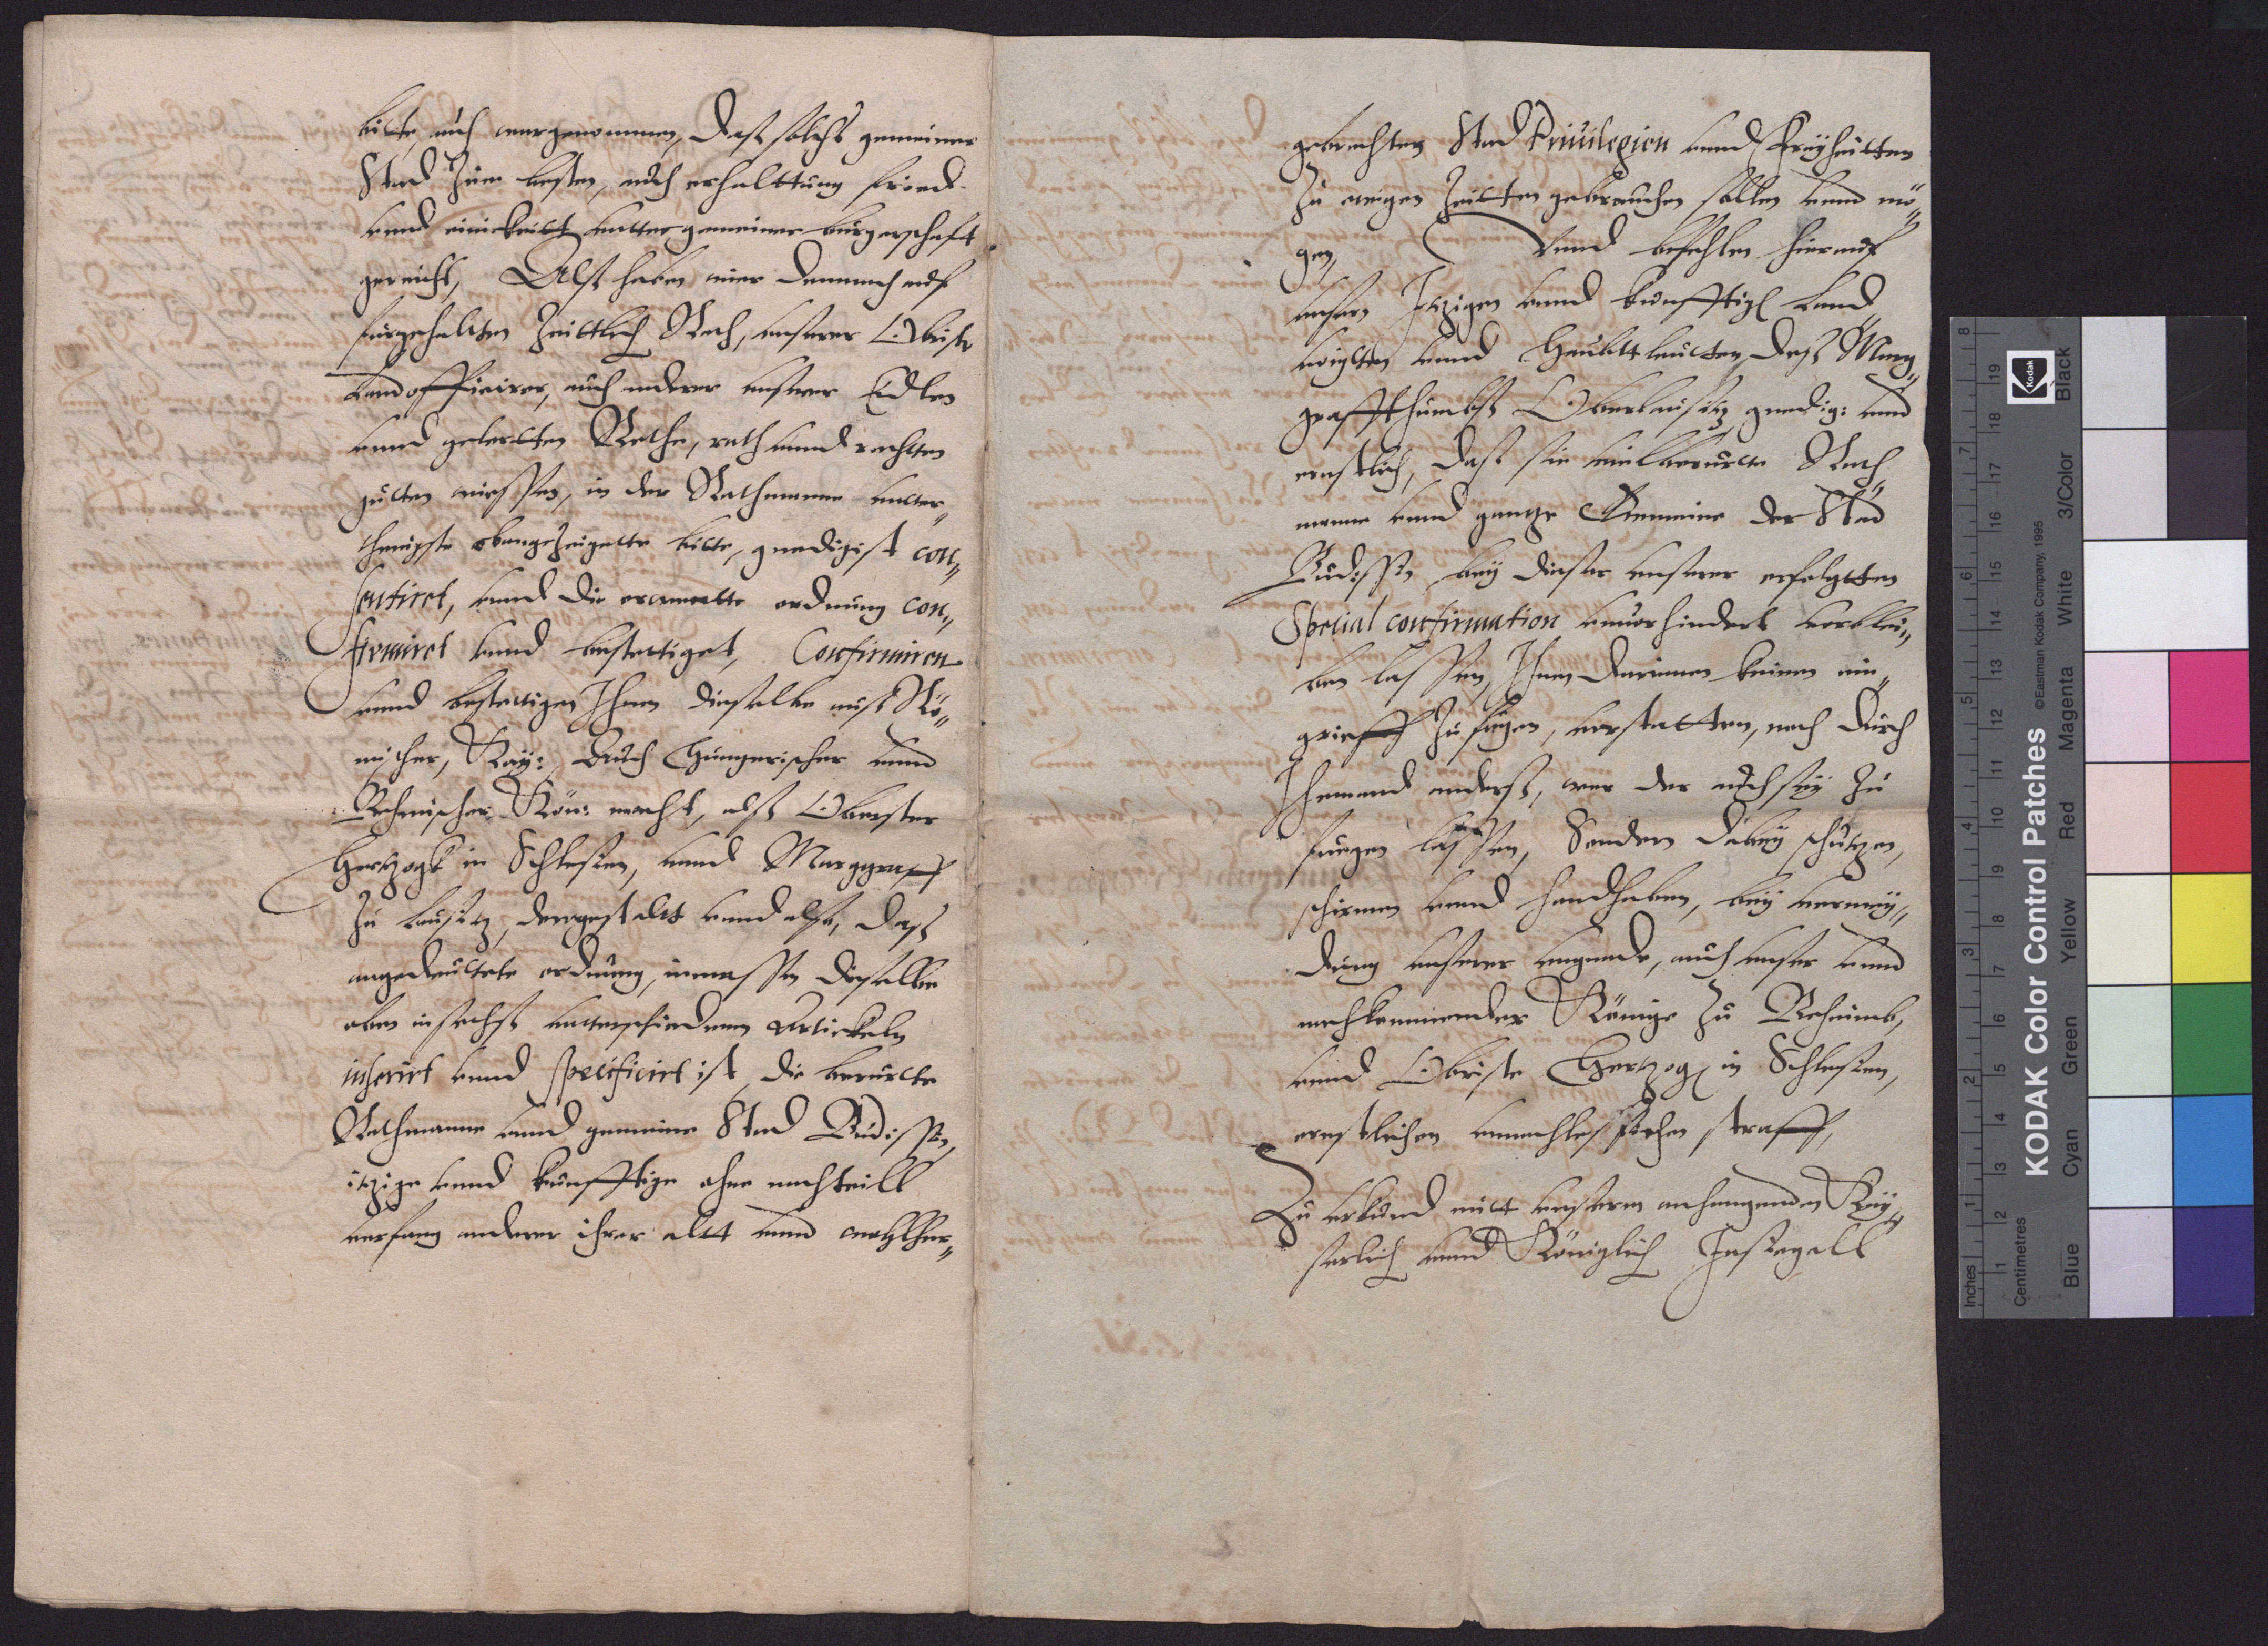 bitte, auch wargenommen, dass solchs gemeiner
Stad zum besten, auch erhalttung fried
unnd einickeitt unttergemeiner burgerschafft
gereicht, Alss haben wier demnach auf
furgehaltten Zeittlich Rath, unserer Obriste
Landofficirer, auch anderer unserer Edlen
unnd gelertten Rethe, rath unnd rechtten
gutten wiessen, in der Rathmanne untter„
thenigste obangezeigette bitte, gnedigist con„
sentiret, unnd die ordnung con„
firmiret unnd bestettiget, Confirmiren
unnd bestettigen Ihnen dieselbe auss Rö„
mischer, Kay: auch Hungerischer unnd
Behmischer Kön: macht, alss Obrister
Hertzogk in Schlesien, unnd Marggraff
zu Lausitz, dergestaltt unnd also, dass
angedeuttete ordnung, inmassen dieselbe
oben in sechss unterschiedenen Artickeln
inserirt unnd specificirt ist, die berurtte
Rathmanne unnd gemeine Stad Budissin,
itzige unnd kunfftige ohne nachteill
anderer ihrer altt unnd wohlher„
gebrachten Stad Privilegien unnd Freyheitten
zu ewigen Zeitten gebrauchen sollen unnd mö„
gen, Unnd befehlen hierauf
unsern Itzigen unnd kunfftigen Land
voigtten unnd Haubttleutten dess Marg„
graffthumbss Oberlausitz gnedig: unnd
ernstlich, dass sie vielberurtte Rath„
manne unnd gantze Gemeine der Stad
Budissin bey dieser unserer erfolgtten
Special confirmation unvorhindert verblei„
ben lassen, Ihnen darinnen keinen ein„
grieff zufugen, verstatten, noch durch
Jhemand anderss, wer der auch sey zu
fuegen lassen, Sondern dabey schutzen,
schirmen unnd handhaben, bey vermey„
dung unserer ungnade, auch unser unnd
nachkommender Könige zu Beheimb,
unnd Obriste Hertzog in Schlesien,
ernstlichen unnachlesslichen straff,
Zu Urkund mitt unserem anhangenden Kay„
serlich unnd Königlich Insiegell
KODAK Color Control Patches
©Eastman Kodak Company, 1995
Kodak
Inches 1 2 3 4 5 6 7 8
Centimetres 1 2 3 4 5 6 7 8 9 10 11 12 13 14 15 16 17 18 19
Blue Cyan Green Yellow Red Magenta White 3/Color Black